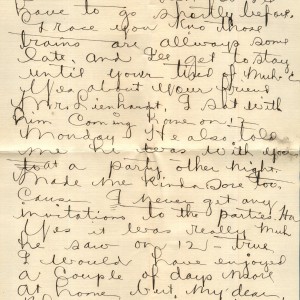 have to go shortly before
I race you kno those
trains are allways some
late, and I'ee get to stay
until your tired of Muh.
Yes about your friend
Mr. Lienhardt, I sat with
him Coming home on 17
Monday He also told
me he was with you
to at a party other night.
Made me kinda sore too.
Cause I never get any
invitations to the parties. Ha
Yes it was really Muh
he saw on 12 - true
I would have enjoyed
a Couple of days more
at home but, My dear